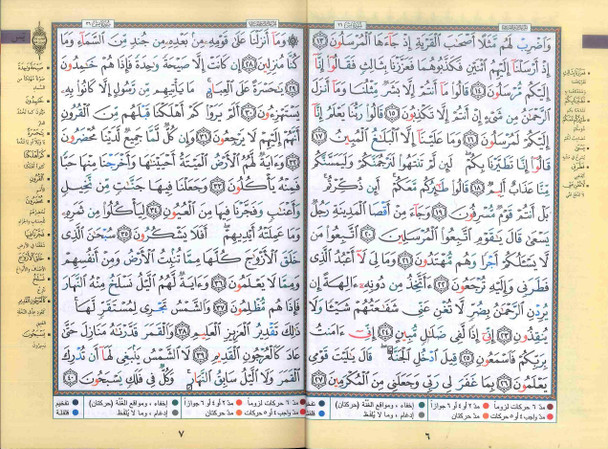 وَٱضْرِبْ لَهُم مَّثَلًا أَصْحَٰبَ ٱلْقَرْيَةِ إِذْ جَآءَهَا ٱلْمُرْسَلُونَ ١٣
إِذْ أَرْسَلْنَآ إِلَيْهِمُ ٱثْنَيْنِ فَكَذَّبُوهُمَا فَعَزَّزْنَا بِثَالِثٍ فَقَالُوٓا۟ إِنَّآ
إِلَيْكُم مُّرْسَلُونَ ١٤ قَالُوا۟ مَآ أَنتُمْ إِلَّا بَشَرٌ مِّثْلُنَا وَمَآ أَنزَلَ
ٱلرَّحْمَٰنُ مِن شَىْءٍ إِنْ أَنتُمْ إِلَّا تَكْذِبُونَ ١٥ قَالُوا۟ رَبُّنَا يَعْلَمُ إِنَّآ
إِلَيْكُمْ لَمُرْسَلُونَ ١٦ وَمَا عَلَيْنَآ إِلَّا ٱلْبَلَٰغُ ٱلْمُبِينُ ١٧
قَالُوٓا۟ إِنَّا تَطَيَّرْنَا بِكُمْ لَئِن لَّمْ تَنتَهُوا۟ لَنَرْجُمَنَّكُمْ وَلَيَمَسَّنَّكُم
مِّنَّا عَذَابٌ أَلِيمٌ ١٨ قَالُوا۟ طَٰٓئِرُكُم مَّعَكُمْ أَئِن ذُكِّرْتُم
بَلْ أَنتُمْ قَوْمٌ مُّسْرِفُونَ ١٩ وَجَآءَ مِنْ أَقْصَا ٱلْمَدِينَةِ رَجُلٌ
يَسْعَىٰ قَالَ يَٰقَوْمِ ٱتَّبِعُوا۟ ٱلْمُرْسَلِينَ ٢٠ ٱتَّبِعُوا۟ مَن
لَّا يَسْـَٔلُكُمْ أَجْرًا وَهُم مُّهْتَدُونَ ٢١ وَمَا لِىَ لَآ أَعْبُدُ ٱلَّذِى
فَطَرَنِى وَإِلَيْهِ تُرْجَعُونَ ٢٢ ءَأَتَّخِذُ مِن دُونِهِۦٓ ءَالِهَةً إِن
يُرِدْنِ ٱلرَّحْمَٰنُ بِضُرٍّ لَّا تُغْنِ عَنِّى شَفَٰعَتُهُمْ شَيْـًٔا وَلَا
يُنقِذُونِ ٢٣ إِنِّىٓ إِذًا لَّفِى ضَلَٰلٍ مُّبِينٍ ٢٤ إِنِّىٓ ءَامَنتُ
بِرَبِّكُمْ فَٱسْمَعُونِ ٢٥ قِيلَ ٱدْخُلِ ٱلْجَنَّةَ قَالَ يَٰلَيْتَ قَوْمِى
يَعْلَمُونَ ٢٦ بِمَا غَفَرَ لِى رَبِّى وَجَعَلَنِى مِنَ ٱلْمُكْرَمِينَ ٢٧
مدّ ٦ حركات لزوماً مدّ ٢ أو ٤ أو ٦ جوازاً إخفاء، ومواقع الغنّة (حركتان) تفخيم
مدّ واجب ٤ أو ٥ حركات مدّ حركتان إدغام، وما لا يُلفظ قلقلة
٦
وَمَآ أَنزَلْنَا عَلَىٰ قَوْمِهِۦ مِنۢ بَعْدِهِۦ مِن جُندٍ مِّنَ ٱلسَّمَآءِ وَمَا
كُنَّا مُنزِلِينَ ٢٨ إِن كَانَتْ إِلَّا صَيْحَةً وَٰحِدَةً فَإِذَا هُمْ خَٰمِدُونَ
٢٩ يَٰحَسْرَةً عَلَى ٱلْعِبَادِ مَا يَأْتِيهِم مِّن رَّسُولٍ إِلَّا كَانُوا۟ بِهِۦ
يَسْتَهْزِءُونَ ٣٠ أَلَمْ يَرَوْا۟ كَمْ أَهْلَكْنَا قَبْلَهُم مِّنَ ٱلْقُرُونِ
أَنَّهُمْ إِلَيْهِمْ لَا يَرْجِعُونَ ٣١ وَإِن كُلٌّ لَّمَّا جَمِيعٌ لَّدَيْنَا مُحْضَرُونَ
٣٢ وَءَايَةٌ لَّهُمُ ٱلْأَرْضُ ٱلْمَيْتَةُ أَحْيَيْنَٰهَا وَأَخْرَجْنَا مِنْهَا حَبًّا
فَمِنْهُ يَأْكُلُونَ ٣٣ وَجَعَلْنَا فِيهَا جَنَّٰتٍ مِّن نَّخِيلٍ
وَأَعْنَٰبٍ وَفَجَّرْنَا فِيهَا مِنَ ٱلْعُيُونِ ٣٤ لِيَأْكُلُوا۟ مِن ثَمَرِهِۦ
وَمَا عَمِلَتْهُ أَيْدِيهِمْ أَفَلَا يَشْكُرُونَ ٣٥ سُبْحَٰنَ ٱلَّذِى
خَلَقَ ٱلْأَزْوَٰجَ كُلَّهَا مِمَّا تُنۢبِتُ ٱلْأَرْضُ وَمِنْ أَنفُسِهِمْ
وَمِمَّا لَا يَعْلَمُونَ ٣٦ وَءَايَةٌ لَّهُمُ ٱلَّيْلُ نَسْلَخُ مِنْهُ ٱلنَّهَارَ
فَإِذَا هُم مُّظْلِمُونَ ٣٧ وَٱلشَّمْسُ تَجْرِى لِمُسْتَقَرٍّ لَّهَا
ذَٰلِكَ تَقْدِيرُ ٱلْعَزِيزِ ٱلْعَلِيمِ ٣٨ وَٱلْقَمَرَ قَدَّرْنَٰهُ مَنَازِلَ حَتَّىٰ
عَادَ كَٱلْعُرْجُونِ ٱلْقَدِيمِ ٣٩ لَا ٱلشَّمْسُ يَنۢبَغِى لَهَآ أَن تُدْرِكَ
ٱلْقَمَرَ وَلَا ٱلَّيْلُ سَابِقُ ٱلنَّهَارِ وَكُلٌّ فِى فَلَكٍ يَسْبَحُونَ ٤٠
مدّ ٦ حركات لزوماً مدّ ٢ أو ٤ أو ٦ جوازاً إخفاء، ومواقع الغنّة (حركتان) تفخيم
مدّ واجب ٤ أو ٥ حركات مدّ حركتان إدغام، وما لا يُلفظ قلقلة
٧